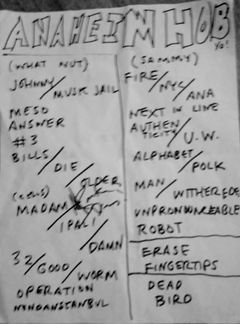 ANAHEIM HOB
YO!
(WHAT NUT)
JOHNNY/
MUSK JAIL
MESO
ANSWER
#3
BILLS/
DIE
OLDER
MADAM/
IPALI
DAMN
32/GOOD/
WORM
OPERATION
(SAMMY)
FIRE/
NYC/
ANA
NEXT IN LINE
AUTHEN
TICITY/U.W.
ALPHABET/
POLK
MAN/
UNPRONOUNCEABLE
ROBOT
ERASE
FINGERTIPS
DEAD
BIRD